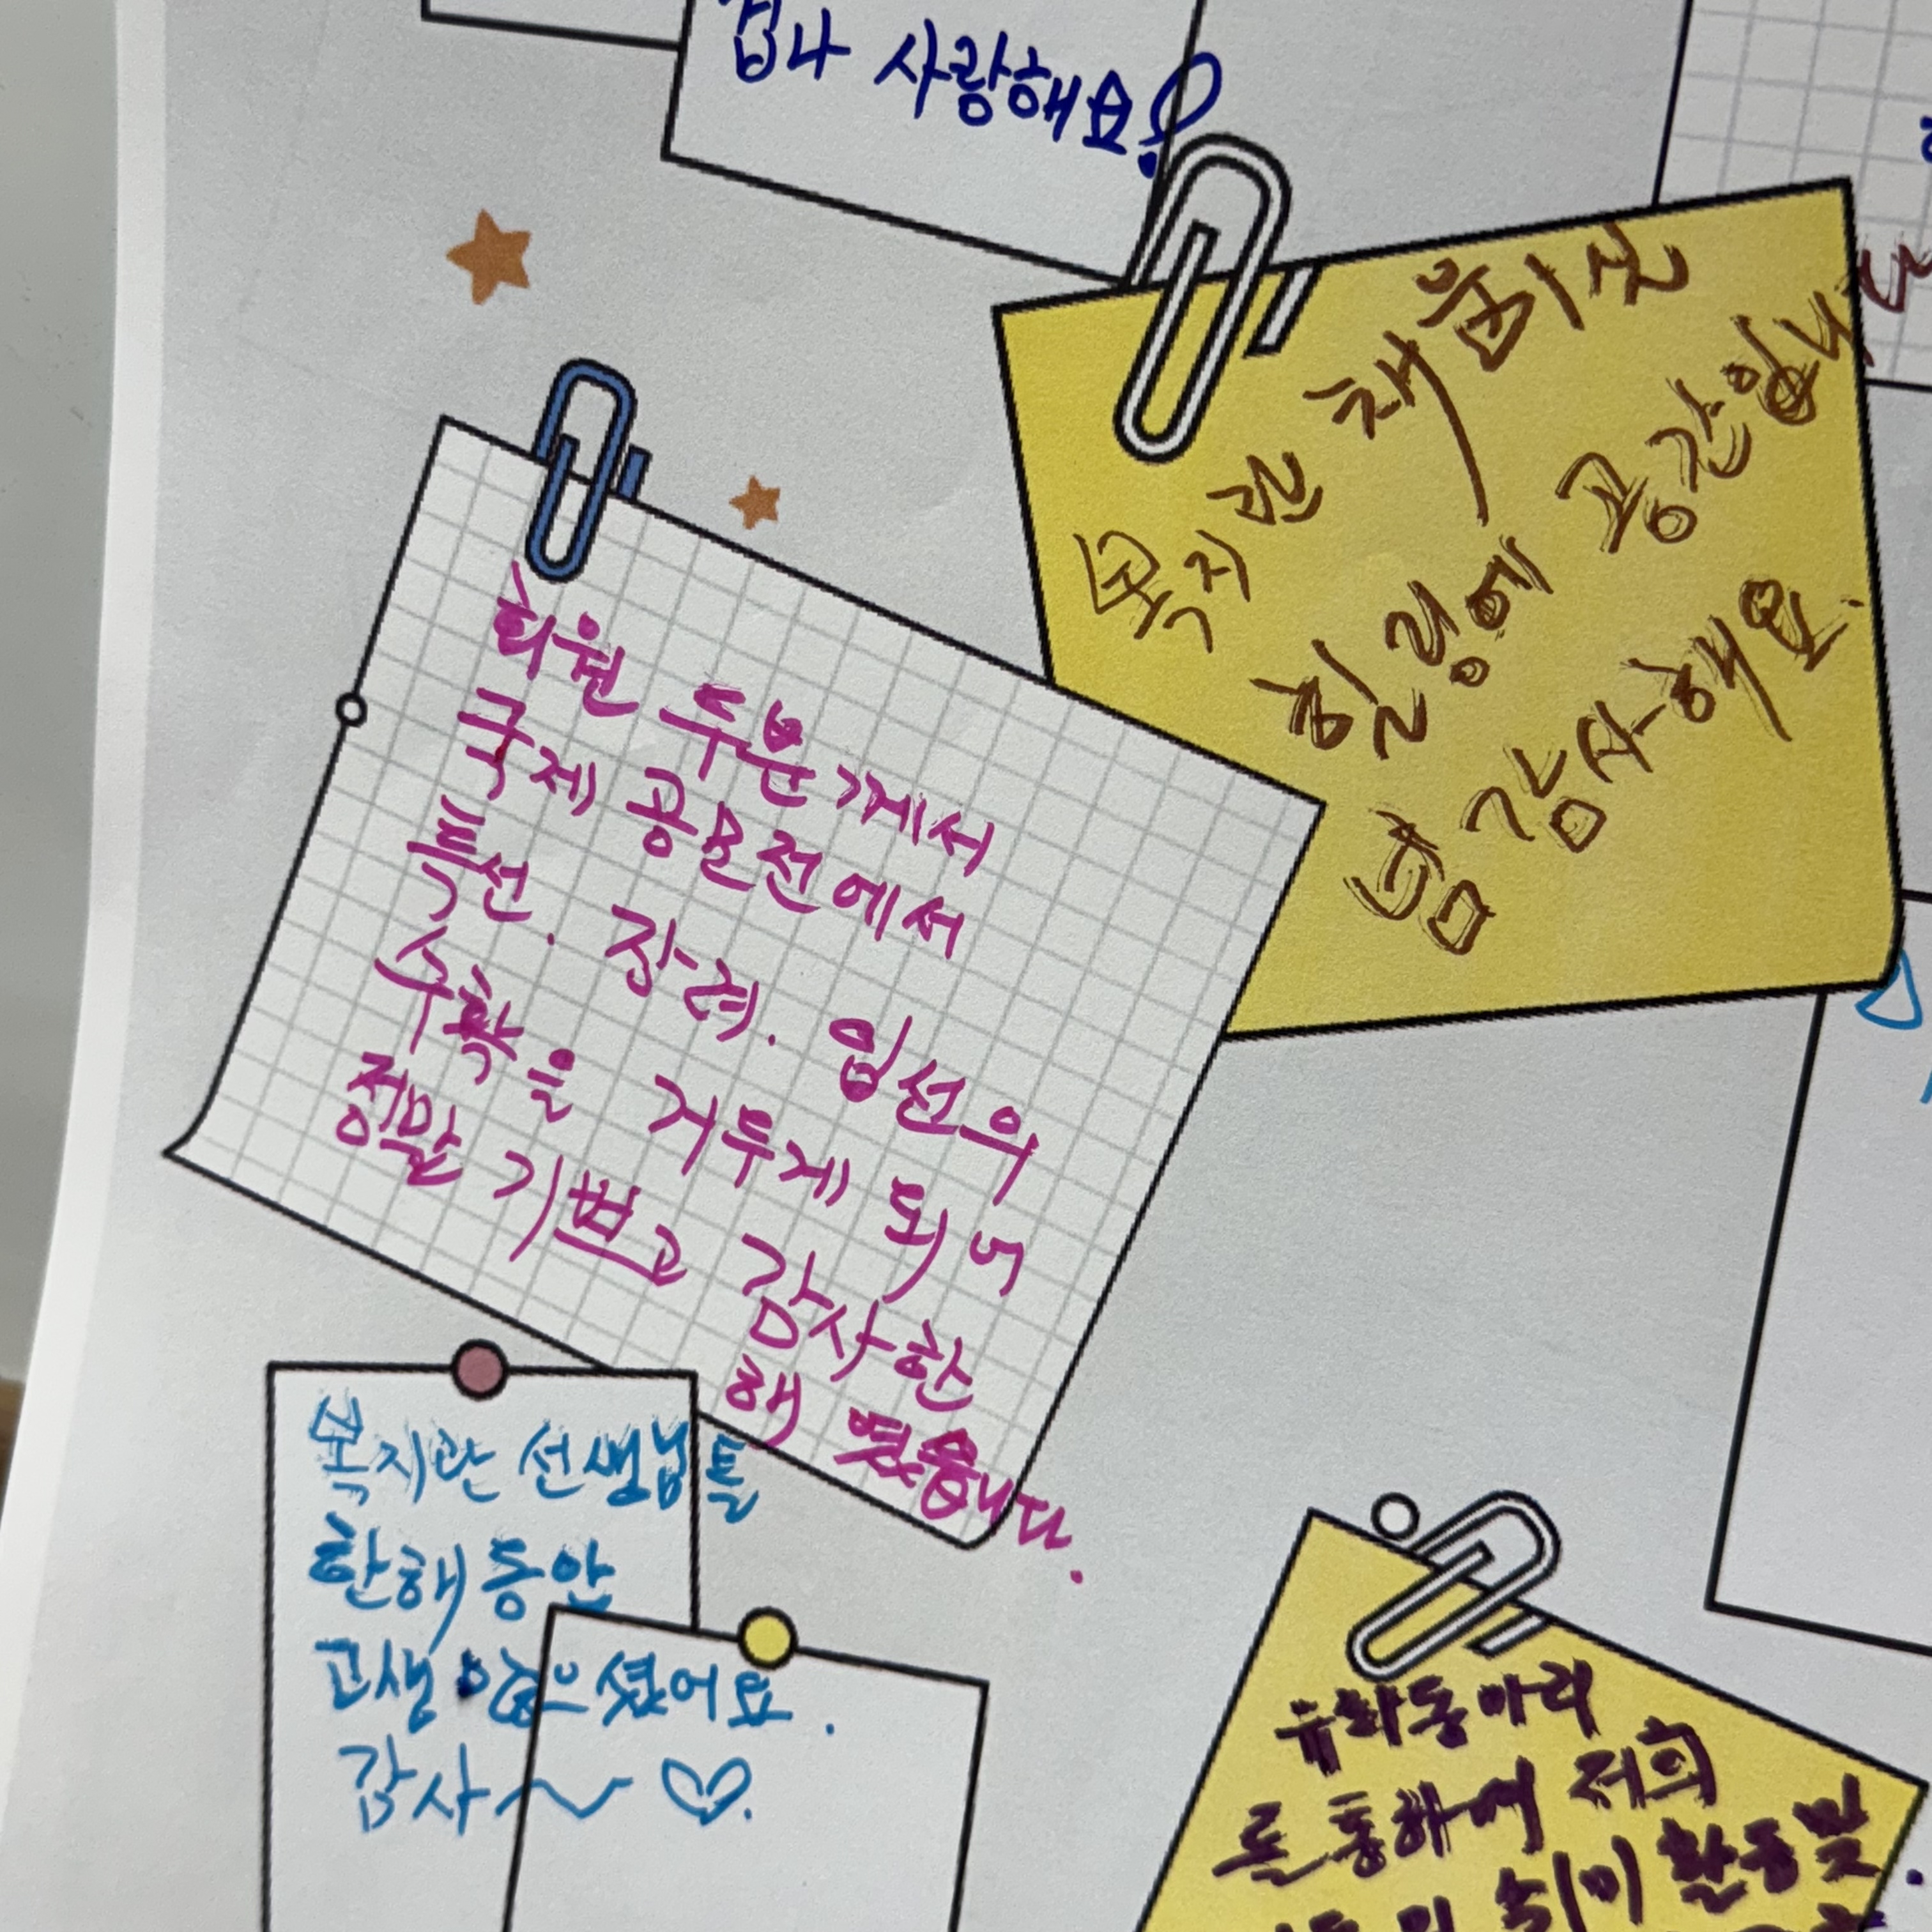 겁나 사랑해요!
복지관 채움이란
힐링에 공간입니다
늘 감사해요.
회원 두분께서
국제 공모전에서
특선. 장려. 입선의
수확을 거두게 되어
정말 기쁘고 감사한
해 였습니다.
복지관 선생님들
한해 동안
고생 많으셨어요.
감사~♡.
유화동아리
를 통하여 저희
취미 활동 및